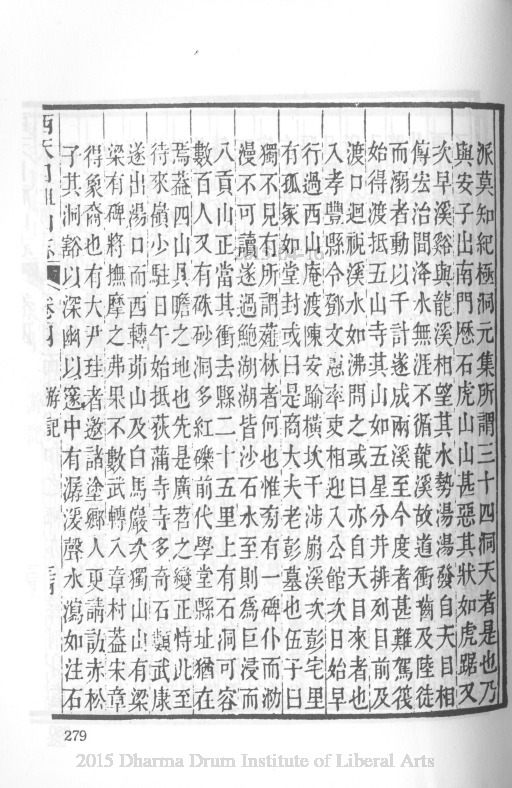 派莫知紀極洞元集所謂三十四洞天者是也乃
與安子出南門歷石虎山山甚惡其狀如虎踞又
次早溪谿與龍溪相望其水勢湯湯發自天目相
傳宏治間洚水無涯不循龍溪故道衝嚙及陸徒
而溺者動以千計遂成兩溪至今度者甚難駕筏
始得渡抵五山寺其山如五星分井排列日前及
渡口迴視溪水如沸問之或曰亦自天目來者也
入孝豐縣令鄧文 率吏相迎入公館次日始早
行過西山庵渡陳安踰橫坎干涉 溪次彭宅里
有孤冢如堂封或曰是商大夫老彭墓也伍子曰
獨不見有所謂薤林者何也惟 有一碑仆而泐
漫不可讀遂過 湖湖皆沙石水至則爲巨浸而
八貢山正當其衝去縣二十五里上有石洞可容
數百人又有硃砂洞多紅礫前代學堂縣址猶在
焉葢四山具瞻之地也先是廣苕之變正恃此至
待來嶺少駐日午始抵荻蒲寺寺多奇石 武康
遂出湯口而西轉茆山及白馬嚴次獨山山有梁
梁有碑將撫摩之弗果不數武轉入章村葢宋章
得象裔也有大尹 者邀諸塗鄉人更請訪赤松
子其洞豁以深幽以窻中有潺湲聲水瀉如注石
西天目祖山志 卷四 游記
279
2015 Dharma Drum Institute of Liberal Arts